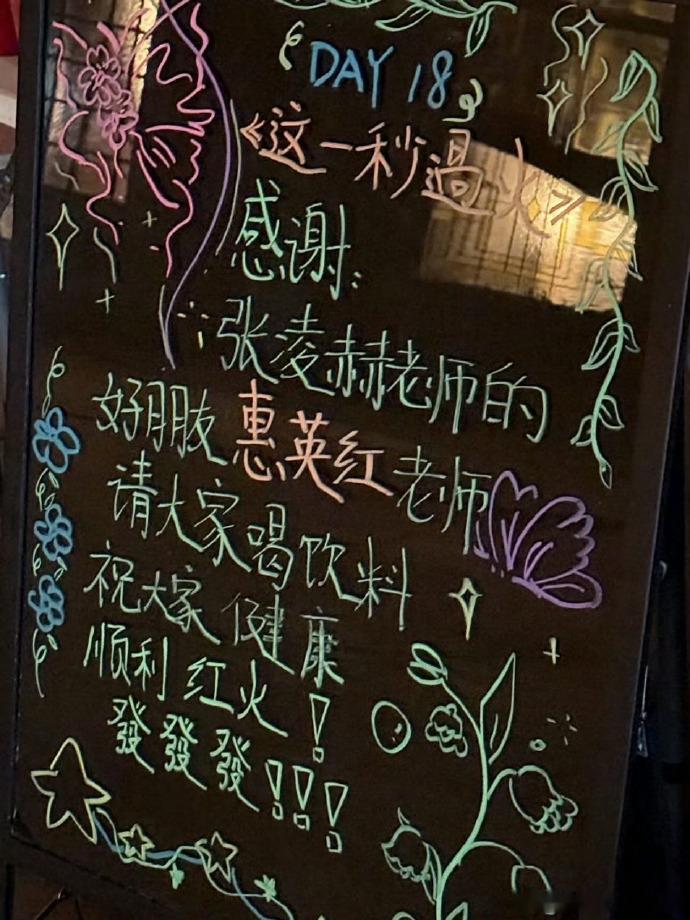 DAY 18
《这一秒過火》
感谢:
张凌赫老师的
好朋友惠英红老师
请大家喝饮料
祝大家健康
顺利红火!
發發發!!!